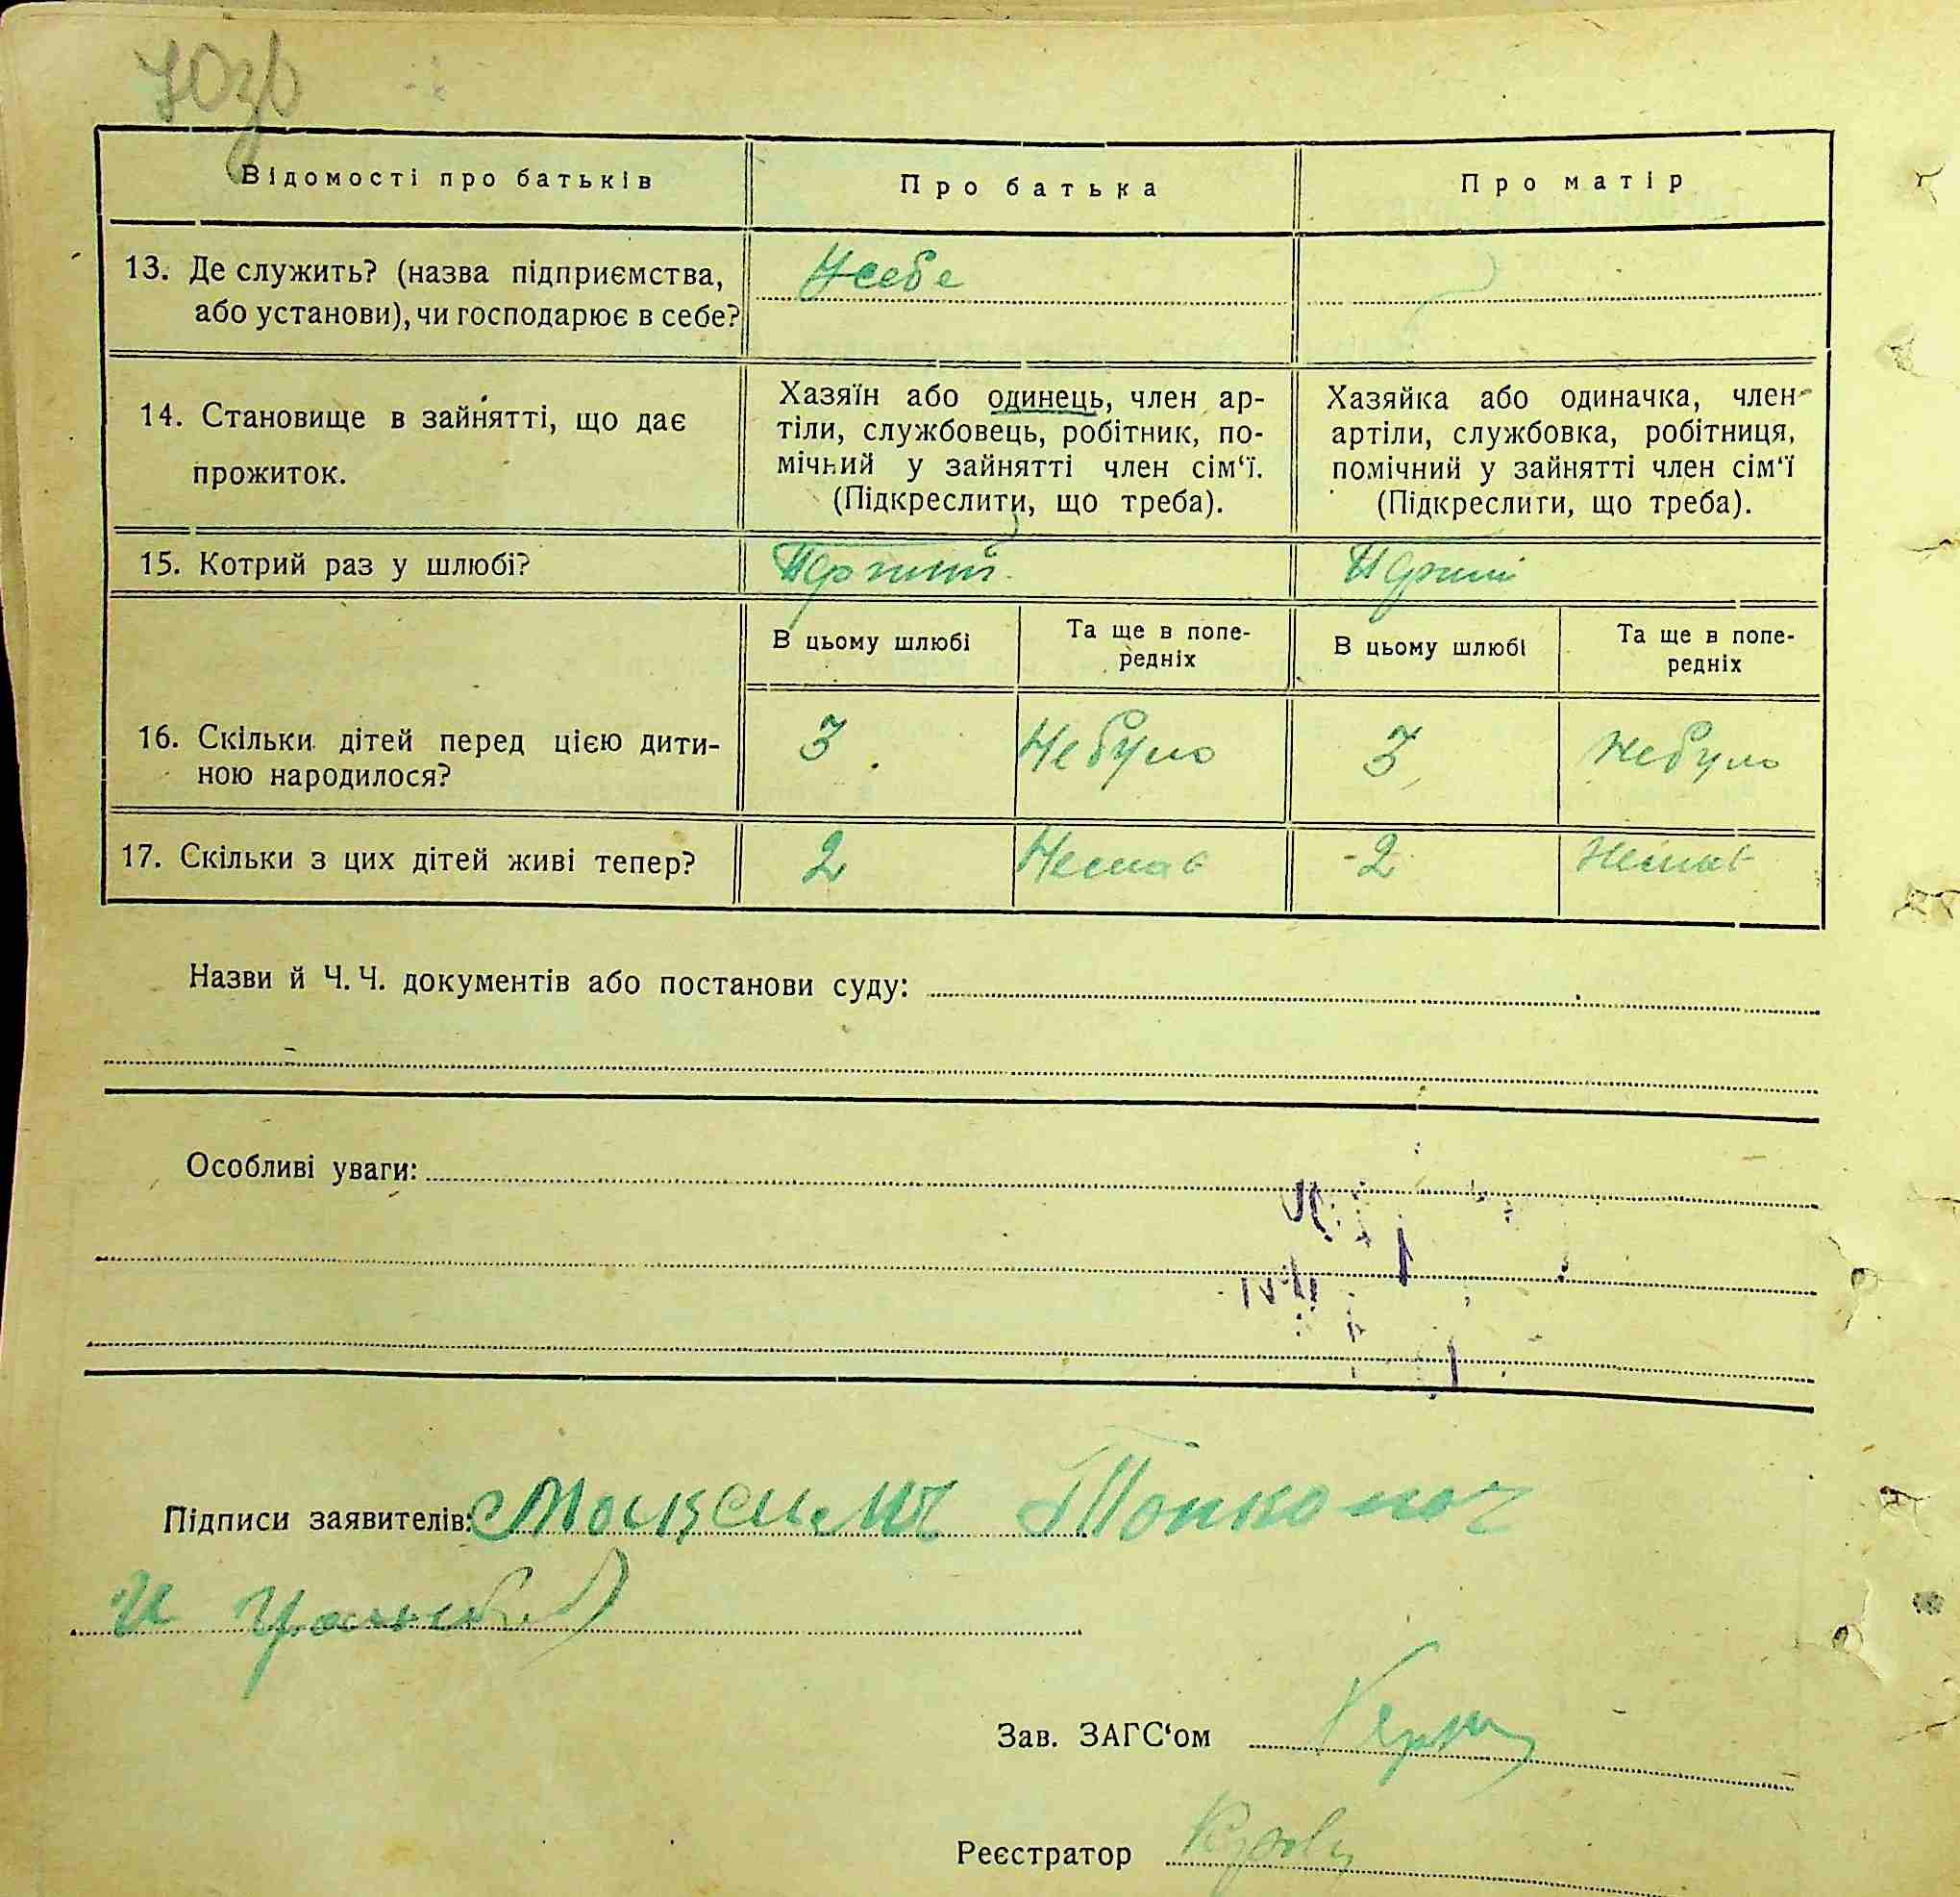 70зв
Відомості про батьків
Про батька
Про матір
13. Де служить? (назва підприємства,
або установи), чи господарює в себе?
У себе
14. Становище в зайнятті, що дає
прожиток.
Хазяїн або одинець, член ар-
тіли, службовець, робітник, по-
мічний у зайнятті член сім‘ї.
(Підкреслити, що треба).
Хазяйка або одиначка, член
артіли, службовка, робітниця,
помічний у зайнятті член сім‘ї
(Підкреслити, що треба).
15. Котрий раз у шлюбі?
В цьому шлюбі
Та ще в попе-
редніх
В цьому шлюбі
Та ще в попе-
редніх
16. Скільки дітей перед цією дити-
ною народилося?
3
Небуло
3
Небуло
17. Скільки з цих дітей живі тепер?
2
2
Назви й Ч. Ч. документів або постанови суду:
Особливі уваги:
Підписи заявителів:
Зав. ЗАГС‘ом
Реєстратор